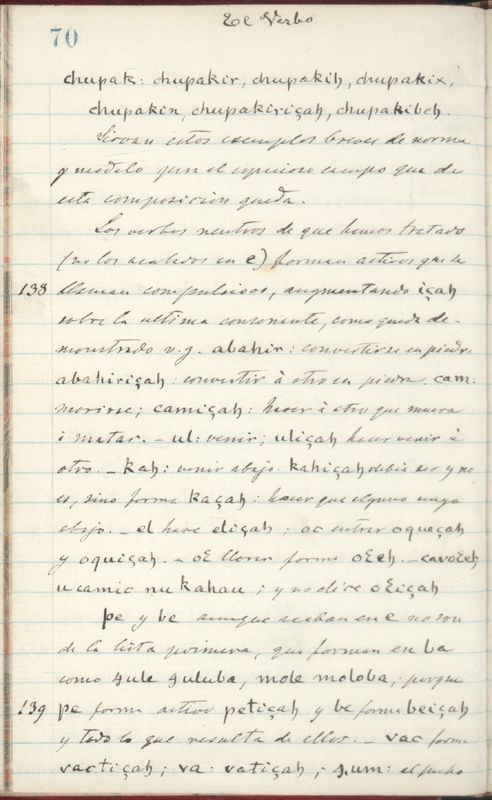 70
El Verbo
chupak: chupakir, chupakih, chupakix,
chupakin, chupakiriçah, chupakibeh.
Sirvan estos exemplos breves de norma
y modelo para el espacioso campo que de
esta composicion queda.
Los verbos neutros de que hemos tratado
(no los acabados en e) forman activos que se
138 llaman compulsivos, augmentando içah
sobre la ultima consonante, como queda de-
monstrado v.g. abahir: convertirse en piedra
abahiriçah: convertir à otro en piedra. cam:
morirse; camiçah: hacer à otro que muera
ò matar. - ul: venir; uliçah hacer venir à
otro. - kah: venir abajo. kahiçah debia ser y no
es, sino forma kaçah: hacer que alguno venga
abajo. - el hace eliçah; oc entrar oqueçah
y oquiçah. - oɛ llorar forma oɛeh. - cavoɛeh
ucamic nu kahau; y no dice oɛiçah
pe y be aunque acaban en e no son
de la lista primera, que forman en ba
como ꜭule ꜭuluba, mole moloba; porque
139 pe forma activo petiçah y be forma beiçah
y todo lo que resulta de ellos. - vac forma
vactiçah; va: vatiçah; ꜭum: el